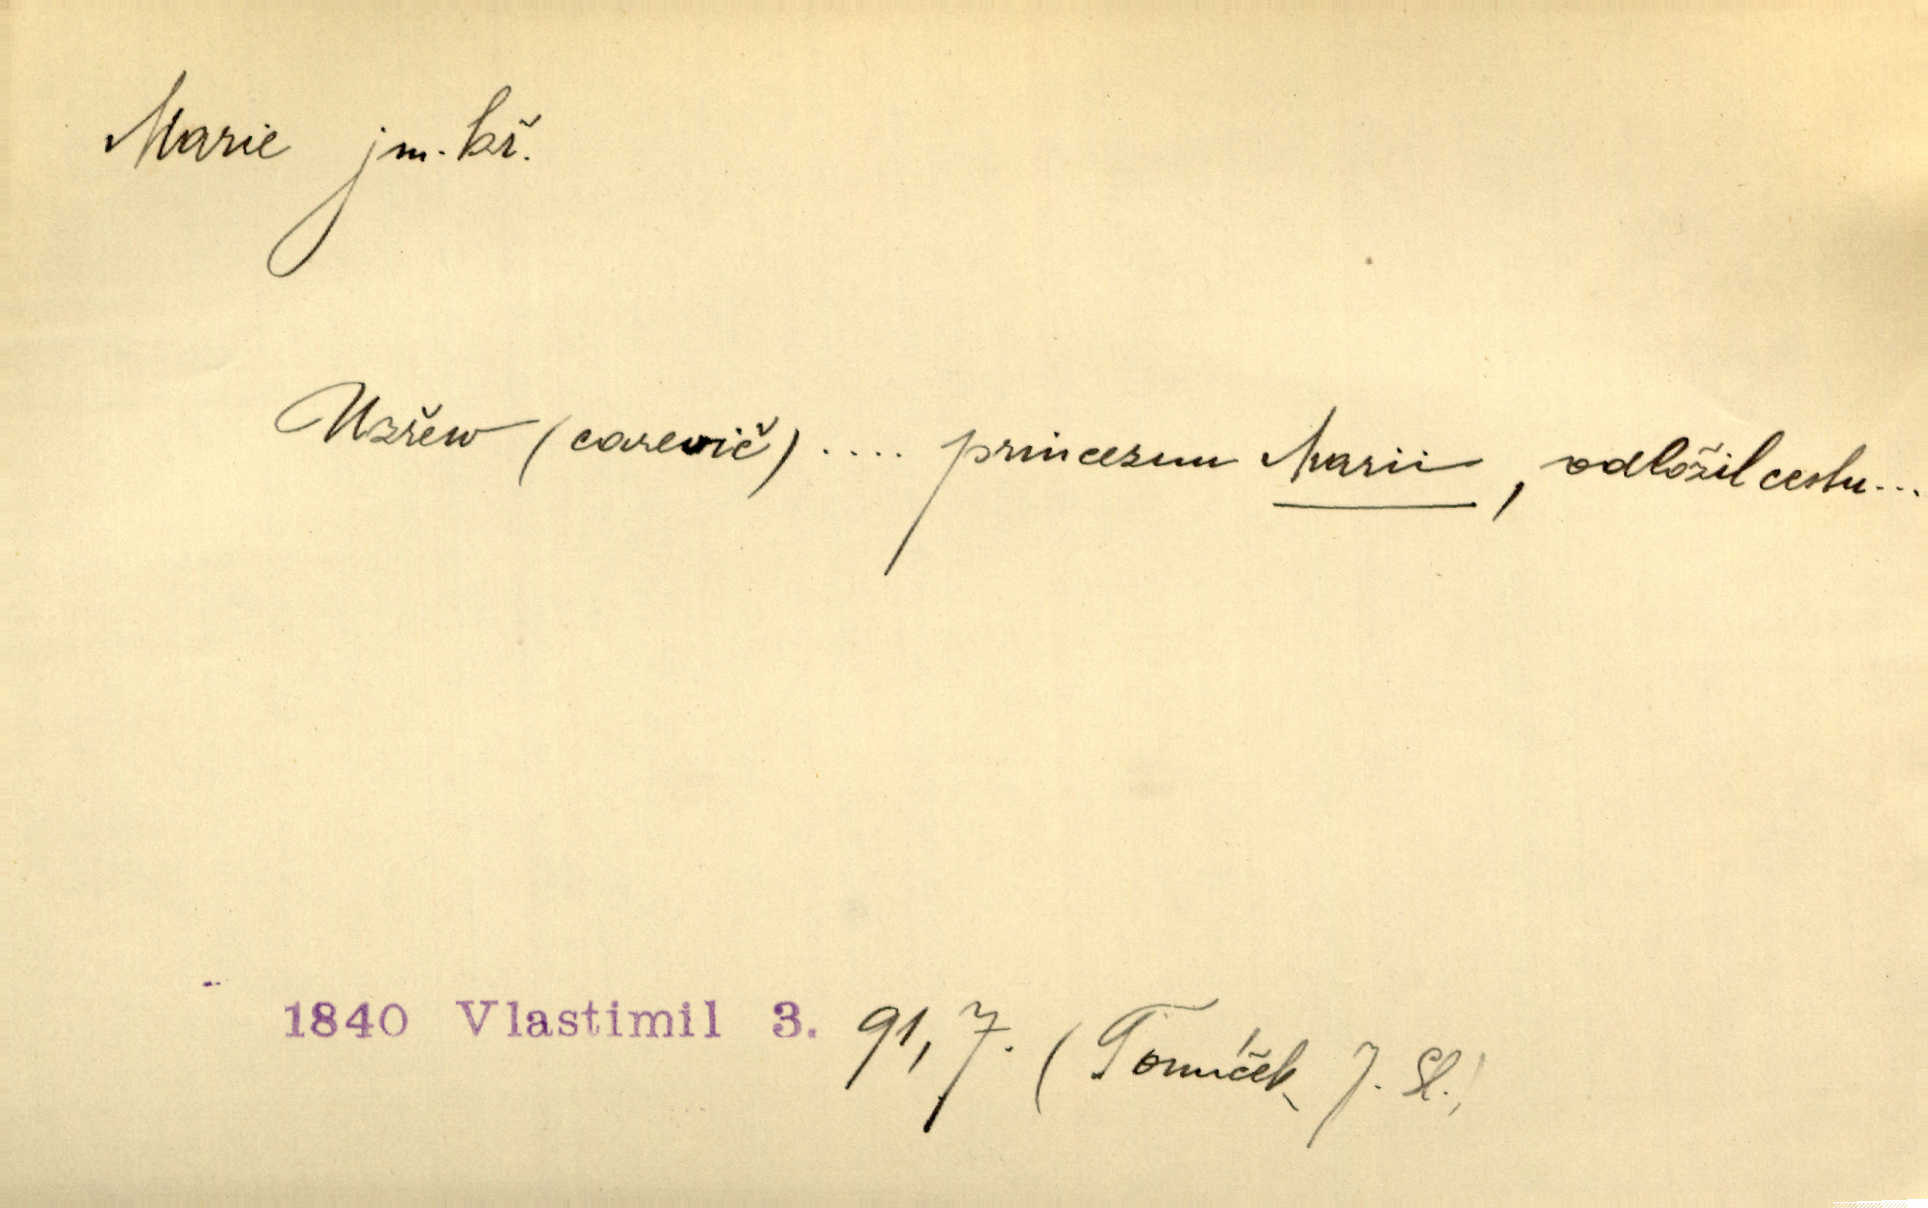 Marie jm. kř.
Uzřew (carevič) .... princeznu Marii, odložil cestu...
1840 Vlastimil 3. 91, 7. (Tomíček J. Sl.)